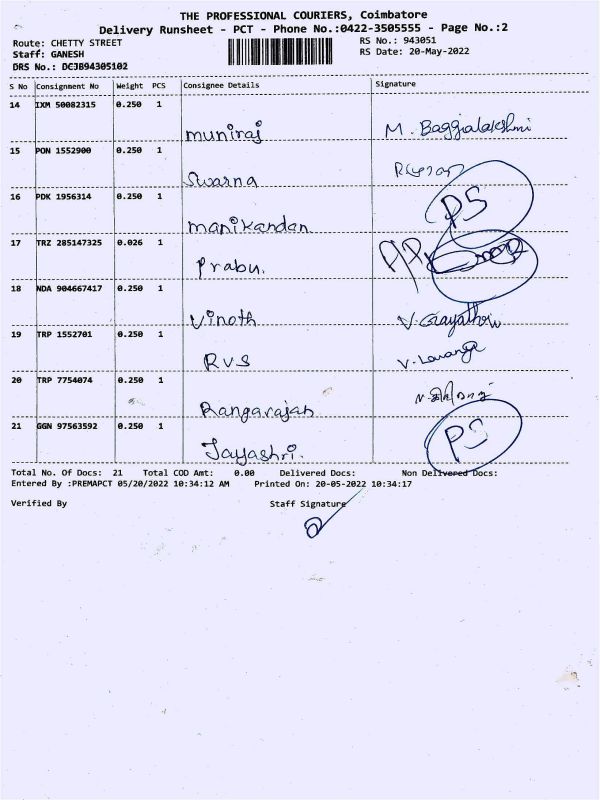 THE PROFESSIONAL COURIERS, Coimbatore
Delivery Runsheet - PCT - Phone No.:0422-3505555 - Page No.:2
Route: CHETTY STREET
RS No.: 943051
Staff: GANESH
RS Date: 20-May-2022
DRS No.: DCJB94305102
S No Consignment No Weight PCS Consignee Details Signature
14 IXM 50082315 0.250 1
muniraj M. Baggialakshmi
15 PON 1552900 0.250 1
Swarna
16 PDK 1956314 0.250 1
manikandan PS
17 TRZ 285147325 0.026 1
Prabu.
18 NDA 904667417 0.250 1
Vinoth V. Gayathri
19 TRP 1552701 0.250 1
RVS
20 TRP 7754074 0.250 1
Rangarajan
21 GGN 97563592 0.250 1
Jayashri. PS
Total No. Of Docs: 21 Total COD Amt: 0.00 Delivered Docs: Non Delivered Docs:
Entered By :PREMAPCT 05/20/2022 10:34:12 AM Printed On: 20-05-2022 10:34:17
Verified By Staff Signature